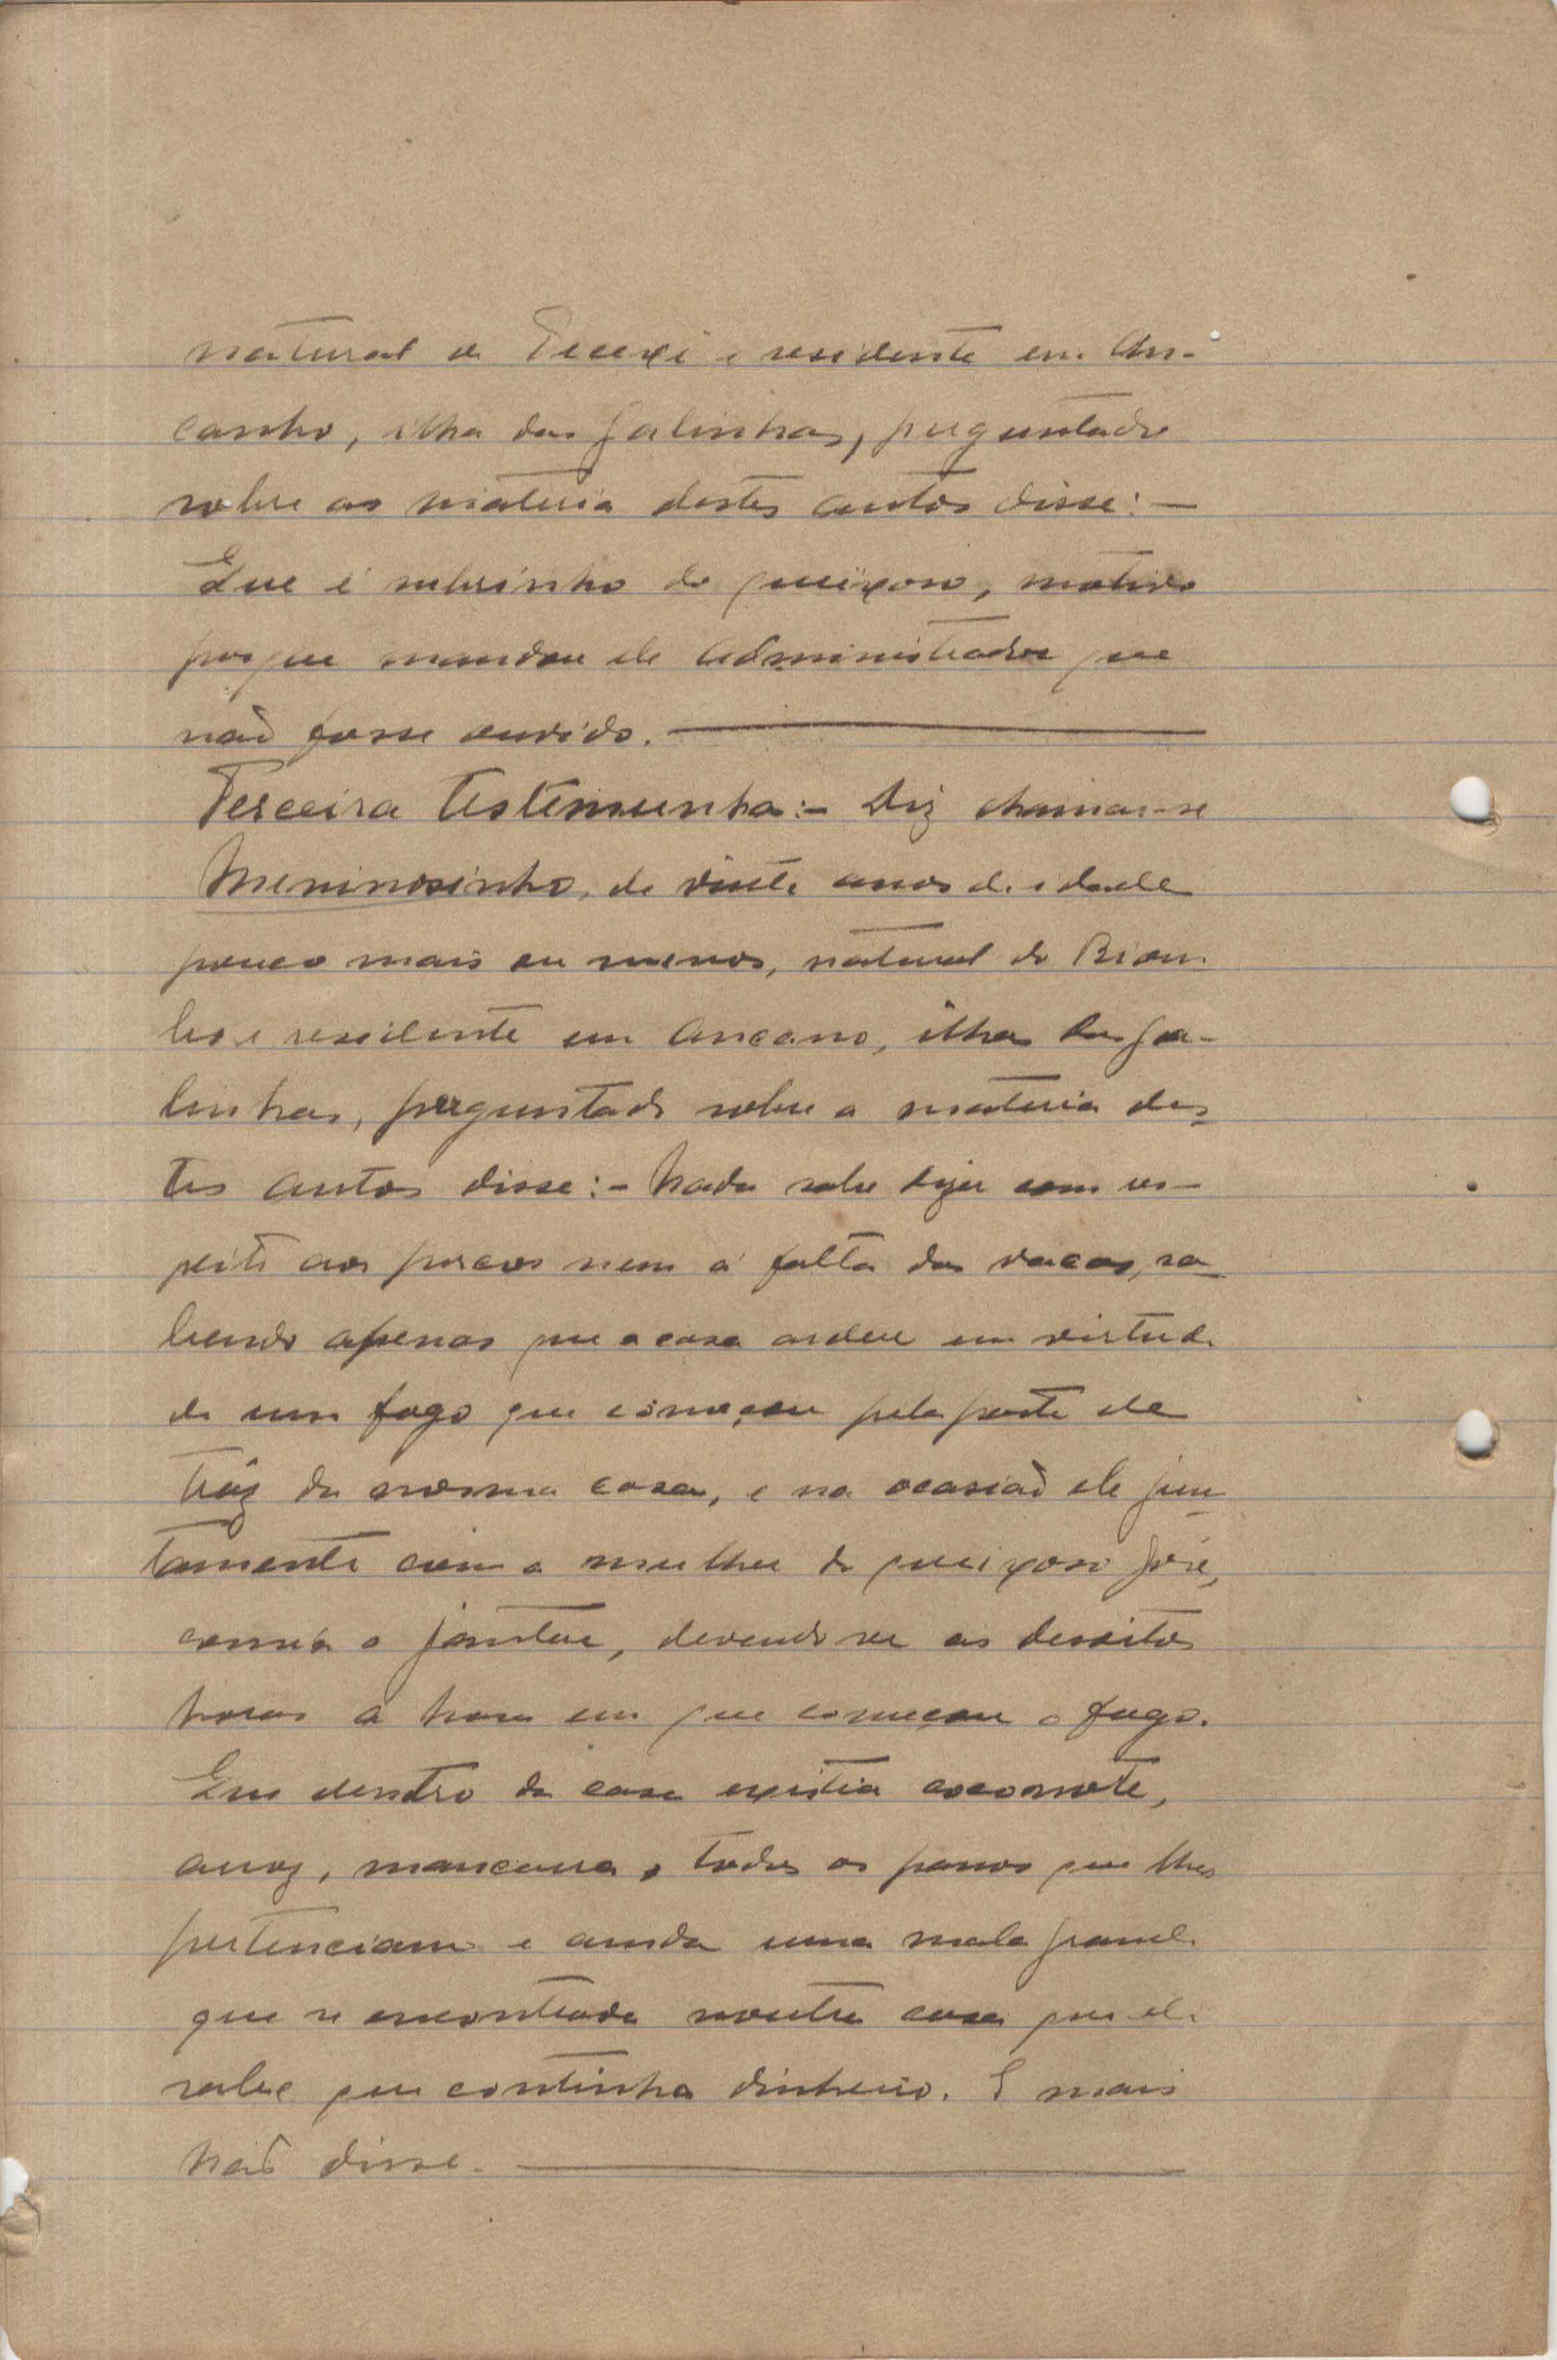 natural de Pecixe e residente em An-
canho, ilha das Galinhas, perguntado
sobre as materia destes autos disse:-
Que é sobrinho do queixoso, motivo
porque mandou ele administrador que
não fosse ouvido.
Terceira testemunha:- Diz chamar-se
Meninosinho, de vinte anos de idade
pouco mais ou menos, natural de Biom-
bo e residente em Ancano, ilha das Ga-
linhas, perguntado sobre a materia des-
tes autos disse:- Nada sabe dizer com res-
peito aos porcos nem á falta das vacas, sa-
bendo apenas que a casa ardeu em virtude
de um fogo que começou pela parte de
traz da mesma casa, e na ocasião ele jun-
tamente com a mulher do queixoso José,
comia o jantar, devendo ser as dezoito
horas a hora em que começou o fogo.
Que dentro da casa existia coconote,
arroz, mancarra, todos os panos que lhes
pertenciam e ainda uma mala grande
que se encontrada noutra casa que ele
sabe que continha dinheiro. E mais
não disse.